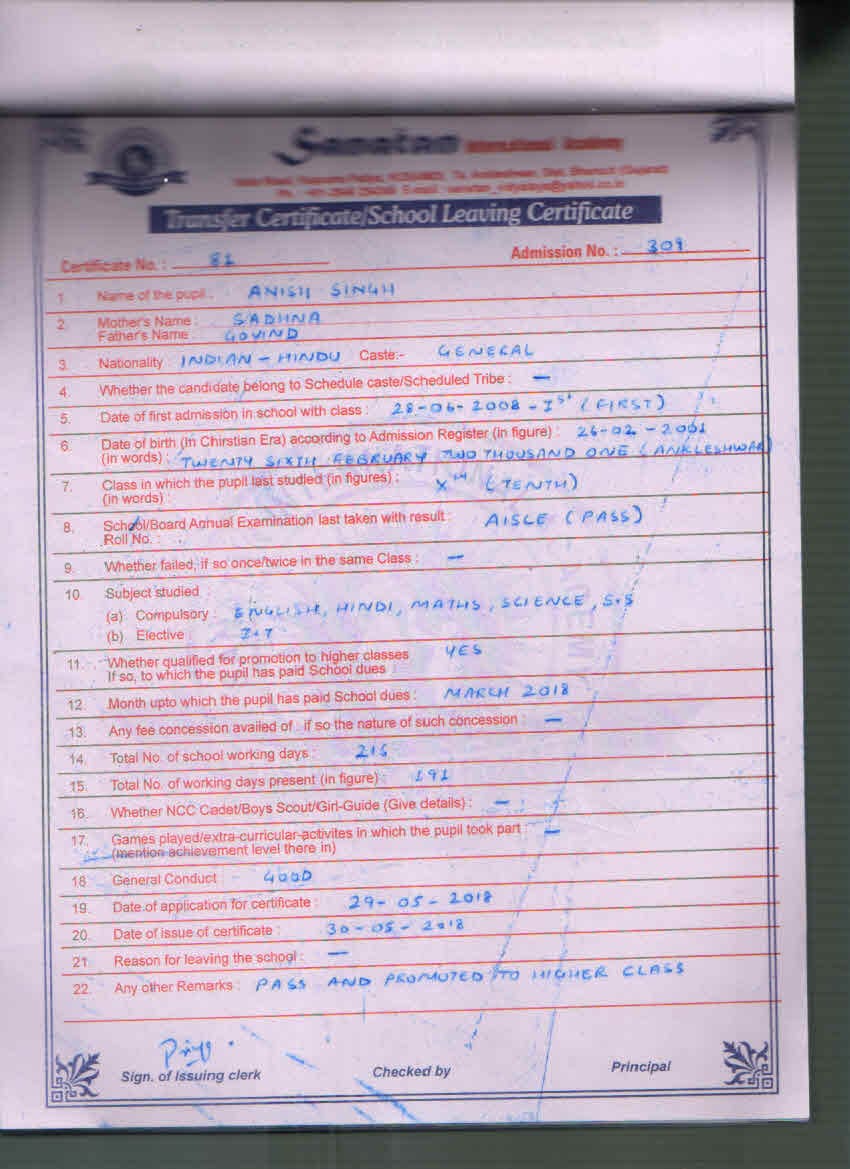 Sanatan International Academy
Transfer Certificate/School Leaving Certificate
Certificate No. : 81 Admission No. : 309
1. Name of the pupil : ANISH SINGH
2. Mother's Name : SADHNA
Father's Name : GOVIND
3. Nationality INDIAN - HINDU Caste:- GENERAL
4. Whether the candidate belong to Schedule caste/Scheduled Tribe : —
5. Date of first admission in school with class : 28-06-2008 - Ist (FIRST)
6. Date of birth (In Chirstian Era) according to Admission Register (in figure) : 26-02-2001
(in words) : TWENTY SIXTH FEBRUARY TWO THOUSAND ONE (ANKLESHWAR)
7. Class in which the pupil last studied (in figures) : XTH (TENTH)
(in words) :
8. School/Board Annual Examination last taken with result : AISCE (PASS)
Roll No. :
9. Whether failed, if so once/twice in the same Class : —
10. Subject studied
(a) Compulsory : ENGLISH, HINDI, MATHS, SCIENCE, S.S
(b) Elective : I.T
11. Whether qualified for promotion to higher classes YES
If so, to which the pupil has paid School dues
12. Month upto which the pupil has paid School dues : MARCH 2018
13. Any fee concession availed of if so the nature of such concession : —
14. Total No. of school working days : 215
15. Total No. of working days present (in figure) : 191
16. Whether NCC Cadet/Boys Scout/Girl-Guide (Give details) : —
17. Games played/extra-curricular-activites in which the pupil took part : —
(mention achievement level there in)
18 General Conduct : GOOD
19. Date of application for certificate : 29-05-2018
20. Date of issue of certificate : 30-05-2018
21 Reason for leaving the school : —
22. Any other Remarks : PASS AND PROMOTED TO HIGHER CLASS
Sign. of Issuing clerk Checked by Principal